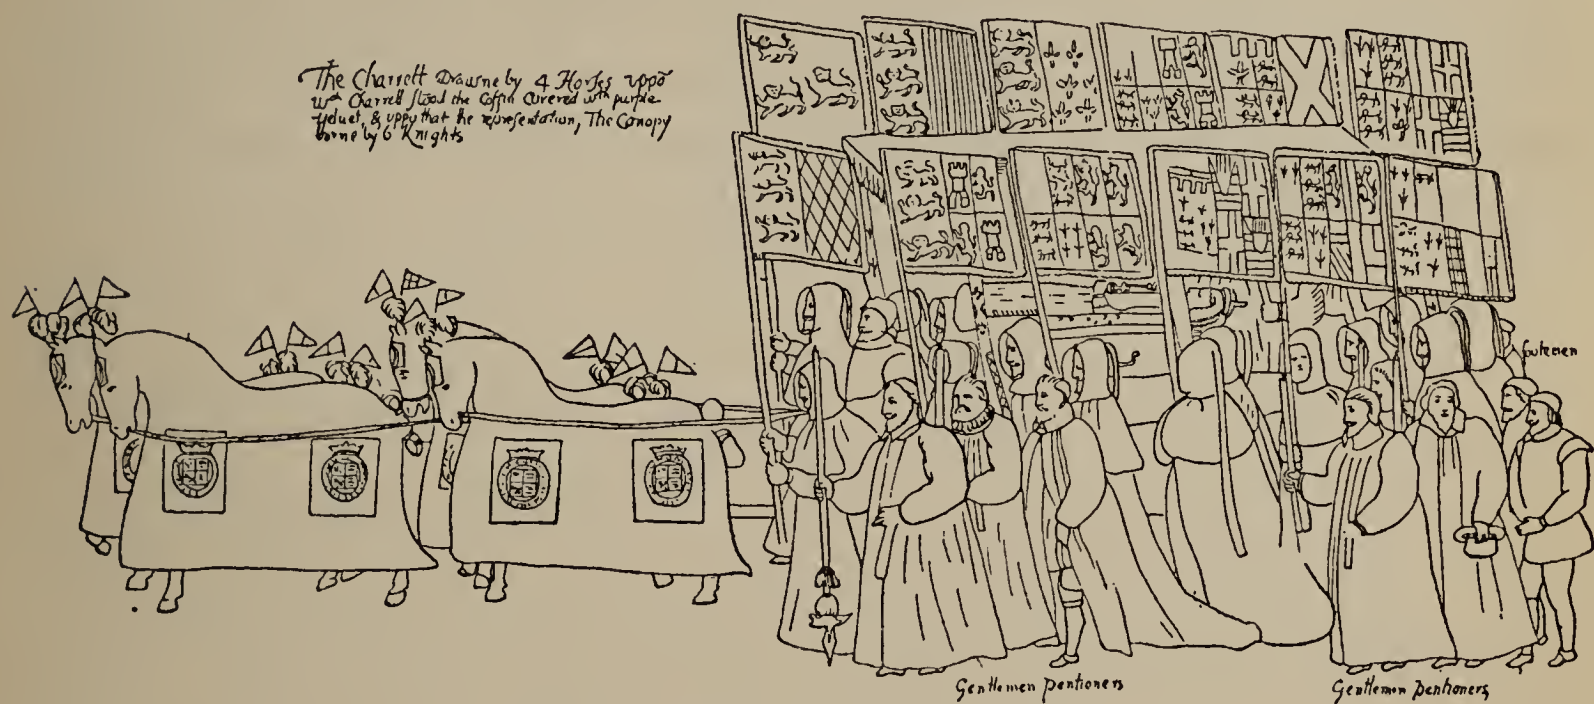 The Charrett Drawne by 4 Horses vppō
wch Charrett stood the Coffin Covered with purple
veluet, & vppō that the representation, The Canopy
borne by 6 Knights
footemen
Gentlemen pentioners
Gentlemen pentioners